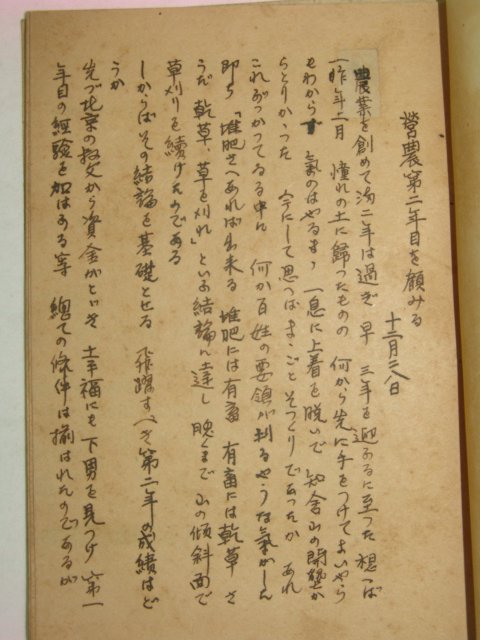 營農第二年目を顧みる
十二月二八日
農業を創めて満二年は過ぎ 早 三年を迎へるに至つた 想へば
一昨年二月 憧れの土に歸つたものの 何から先に手をつけてよいやら
もわからず 氣のはやるまゝ 一息に上着を脱いで 知舎山の開墾か
らとりかゝつた 今にして思へば まゝごとそつくりであつたが あれ
これぶつかつてゐる中に 何か百姓の要領が判るやうな氣がしん
即ち 「堆肥さへあれば出来る 堆肥には有畜 有畜には乾草 さ
うだ 乾草 草を刈れ」といふ結論に達し 晩くまで 山の傾斜面で
草刈りを續けたのである
しからばその結論を基礎とせる 飛躍すべき第二年の成績はど
うか
先づ北京の叔父から資金がとゞき 幸福にも 下男を見つけ 第一
年目の經驗を加はある等 總ての條件は揃はれたのであるが